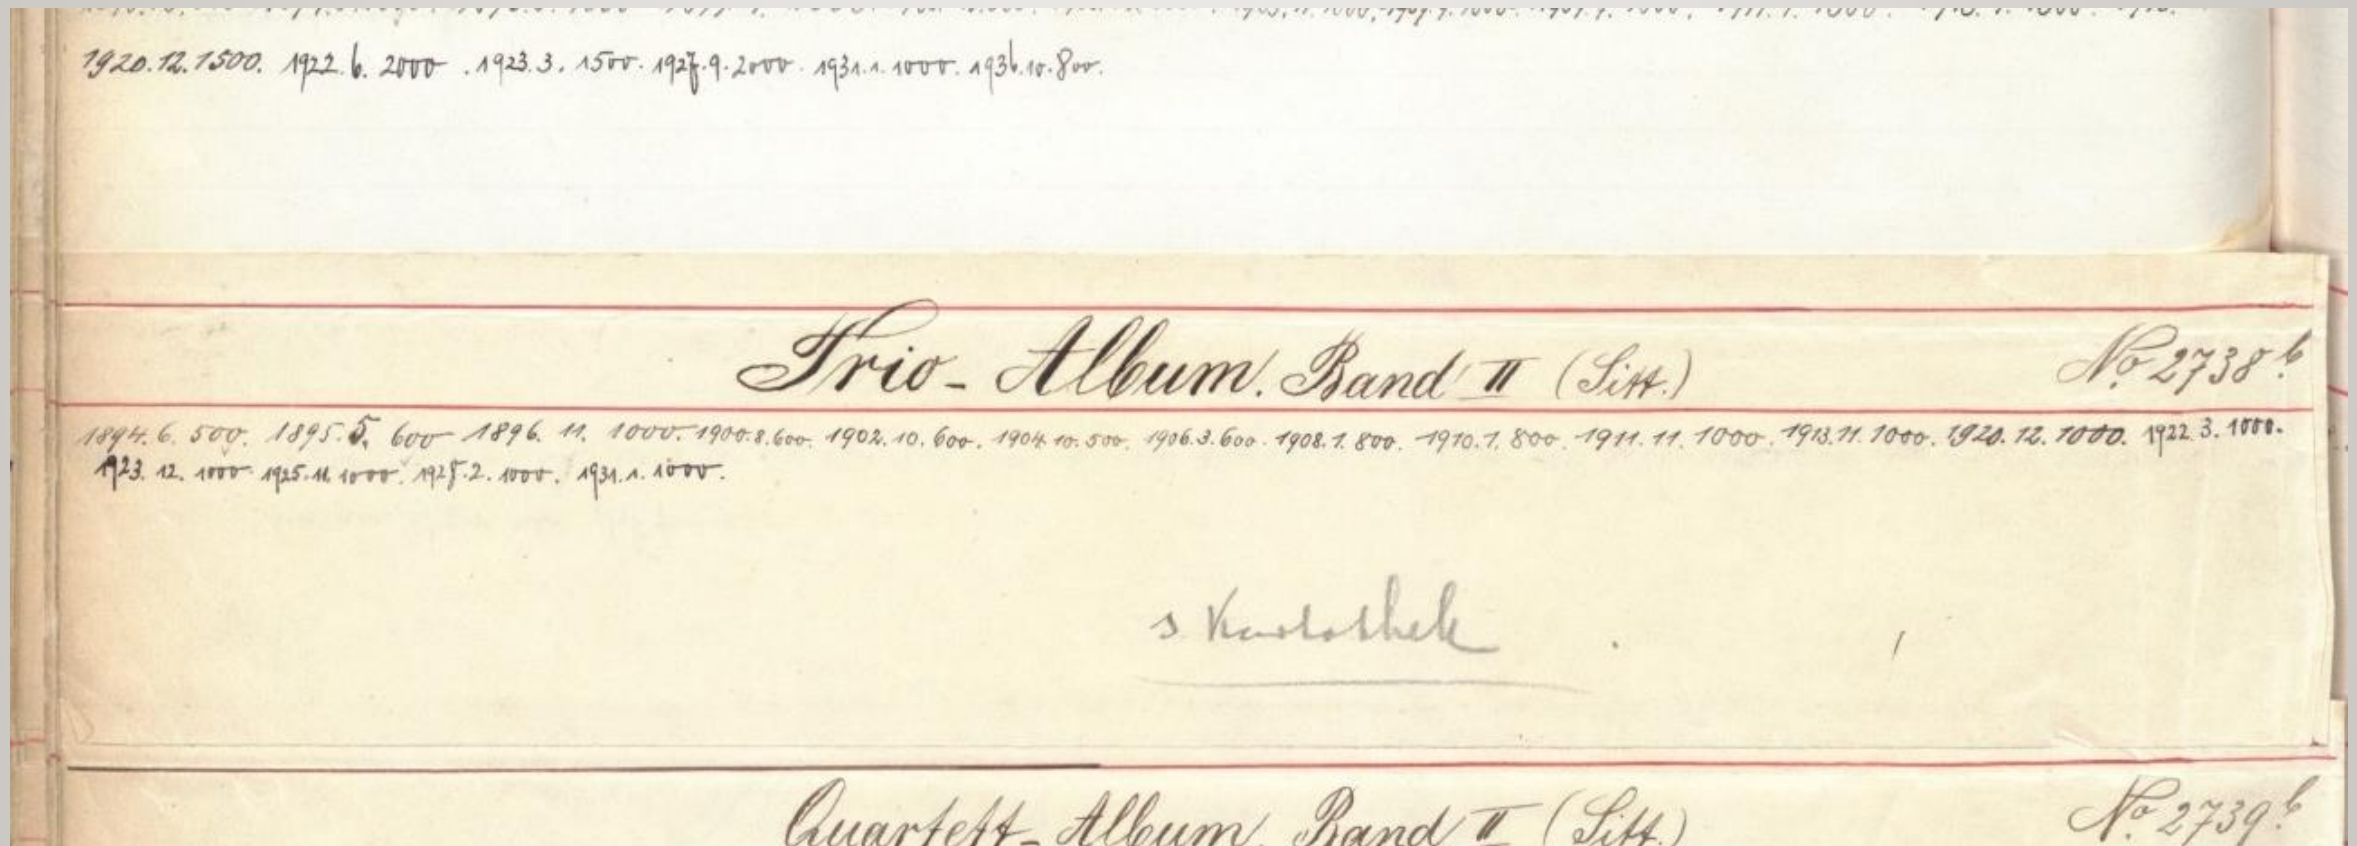 1920.12.1500. 1922.6. 2000. 1923.3. 1500. 1927.9.2000. 1931.1.1000. 1936.10.800.
Trio-Album. Band II (Sitt.) No. 2738b.
1894.6.500. 1895.5. 600 1896. 11. 1000. 1900.8.600. 1902.10.600. 1904.10.500. 1906.3.600. 1908.1.800. 1910.1.800. 1911.11.1000. 1913.11.1000. 1920.12.1000. 1922.3.1000.
1923.12.1000 1925.11.1000. 1928.2.1000. 1931.1.1000.
s Kartothek
Quartett-Album. Band II (Sitt.) No. 2739b.